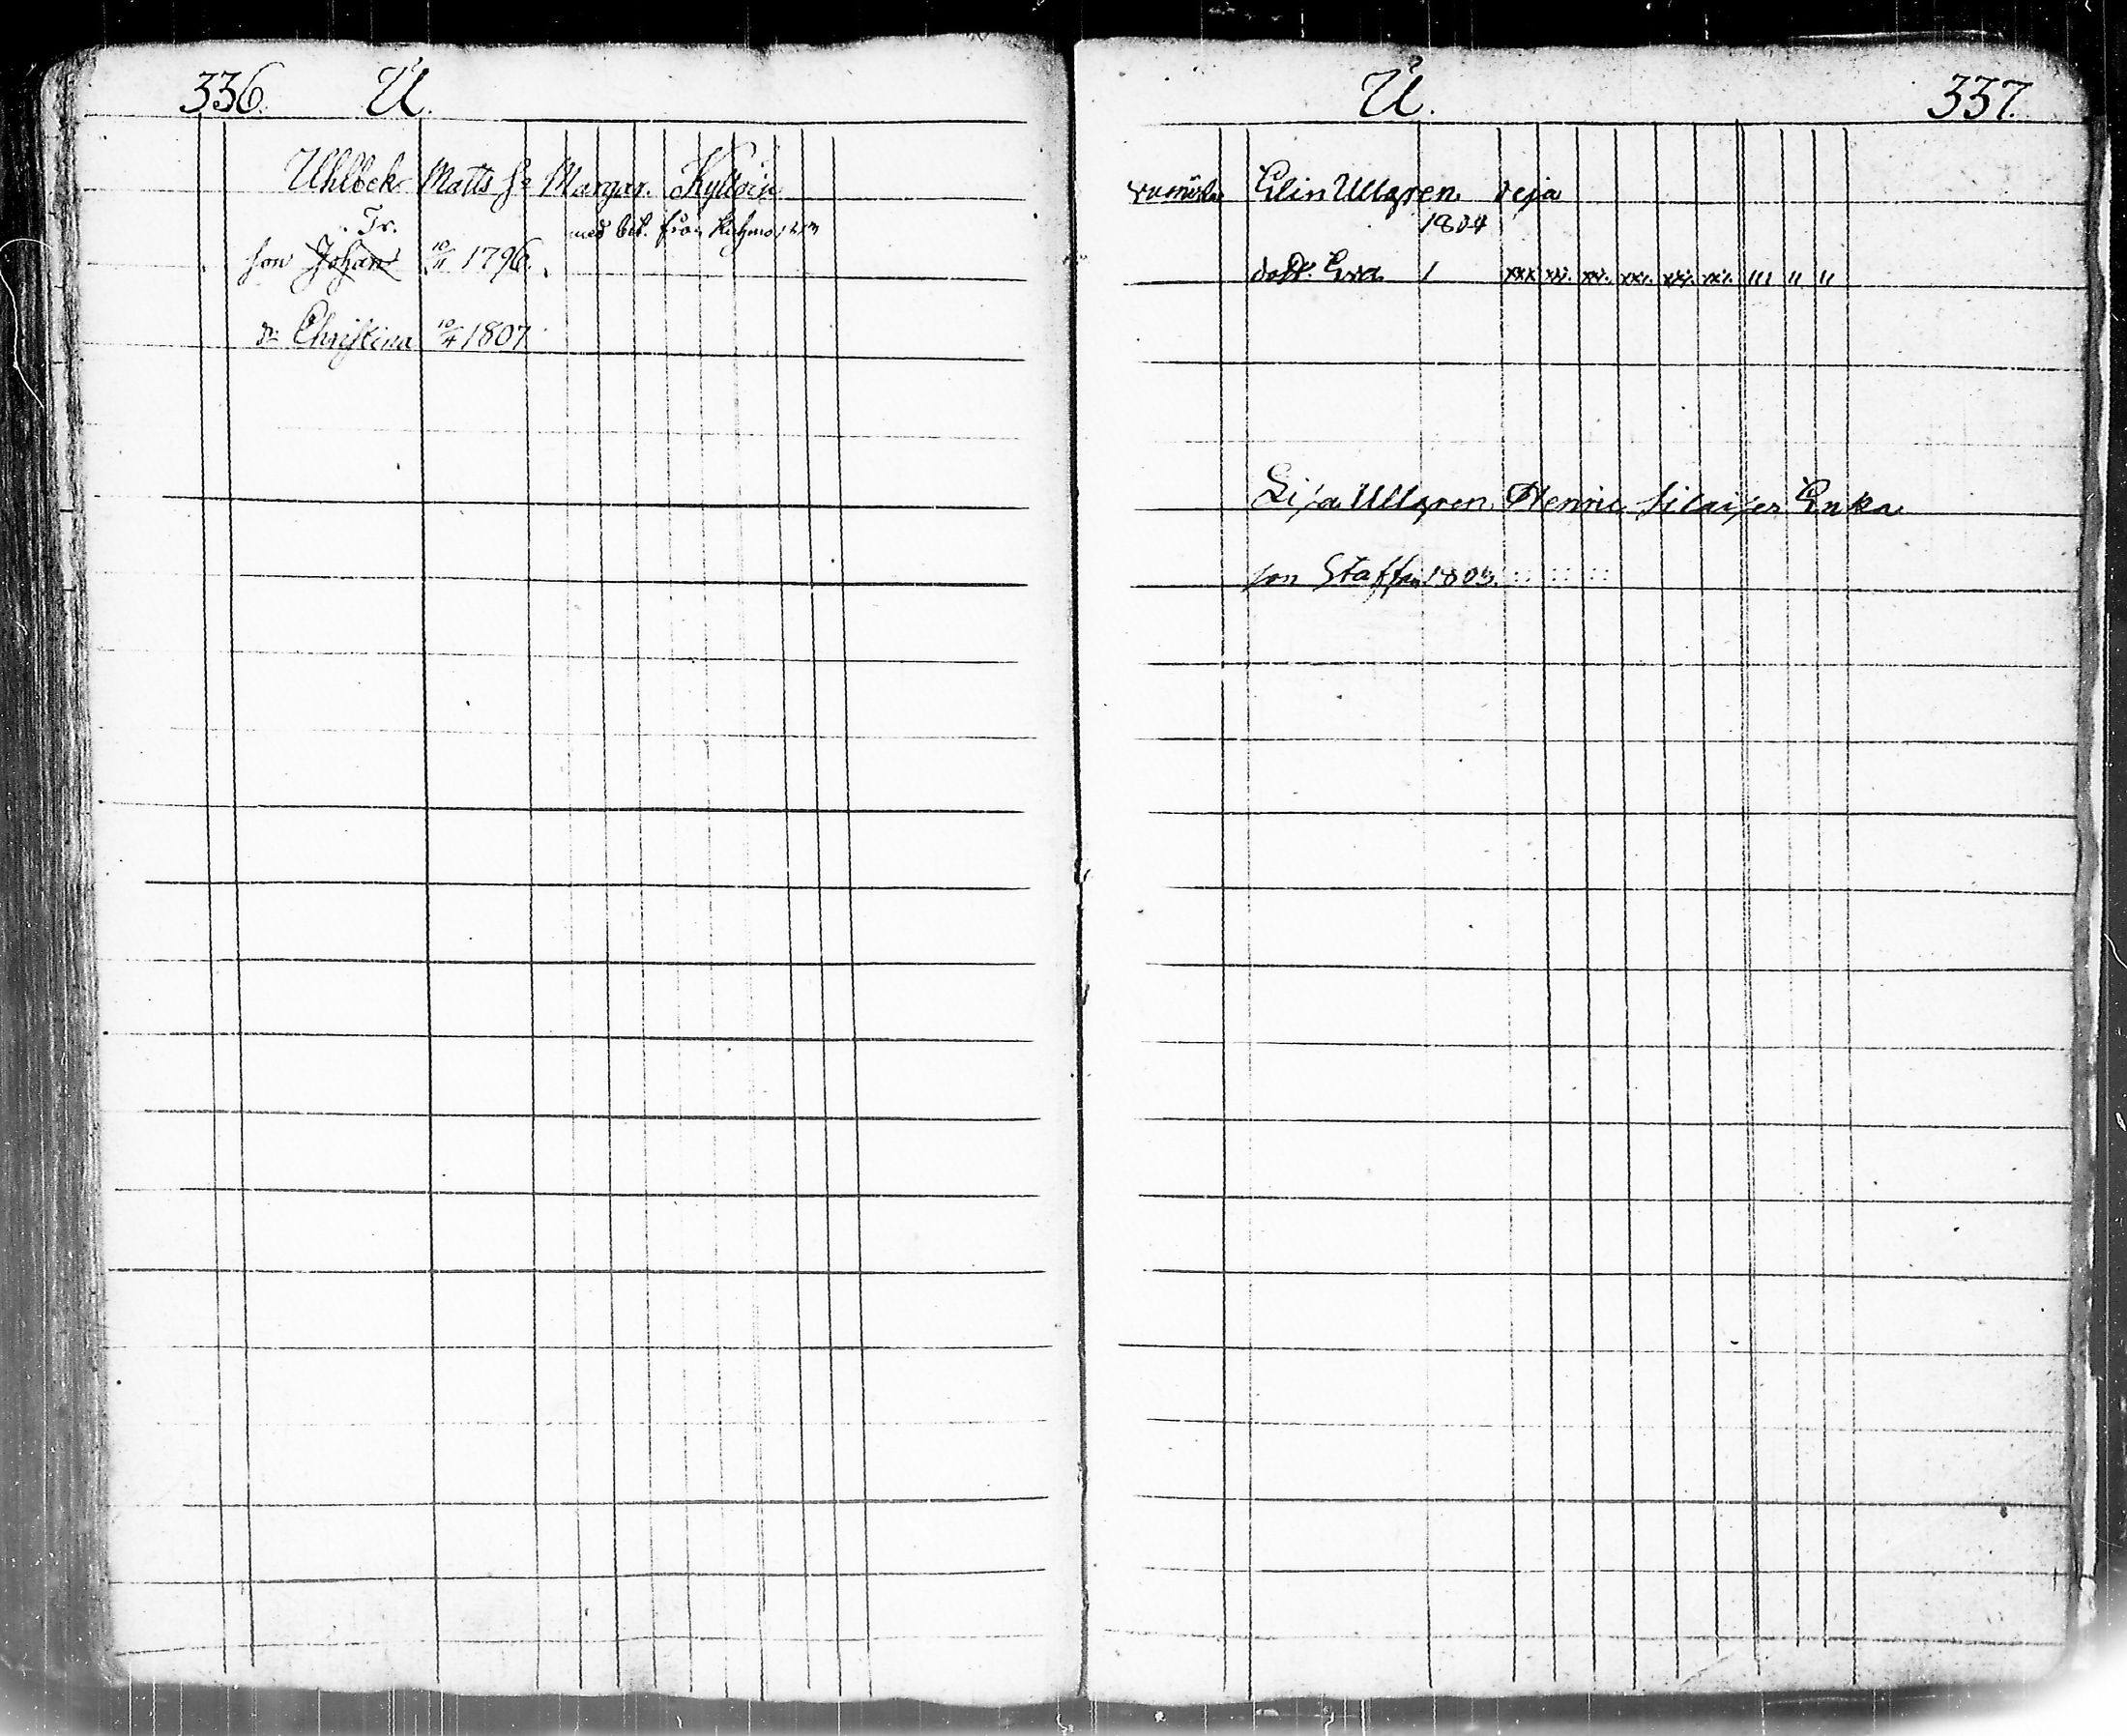 336. U.
Uhlbck Matts h: Margar. Kyllöin
Tr.
med bet. från
son Johan 10/11 1796.
dr Christina 10/4 1807
U. 337.
Elin Ullgren deja
1804
dott. Eva 1 xxx xx. xx. xx. xx. xx. III II II
Lisa Ullgren Henric Enka
son Staffan 1803.